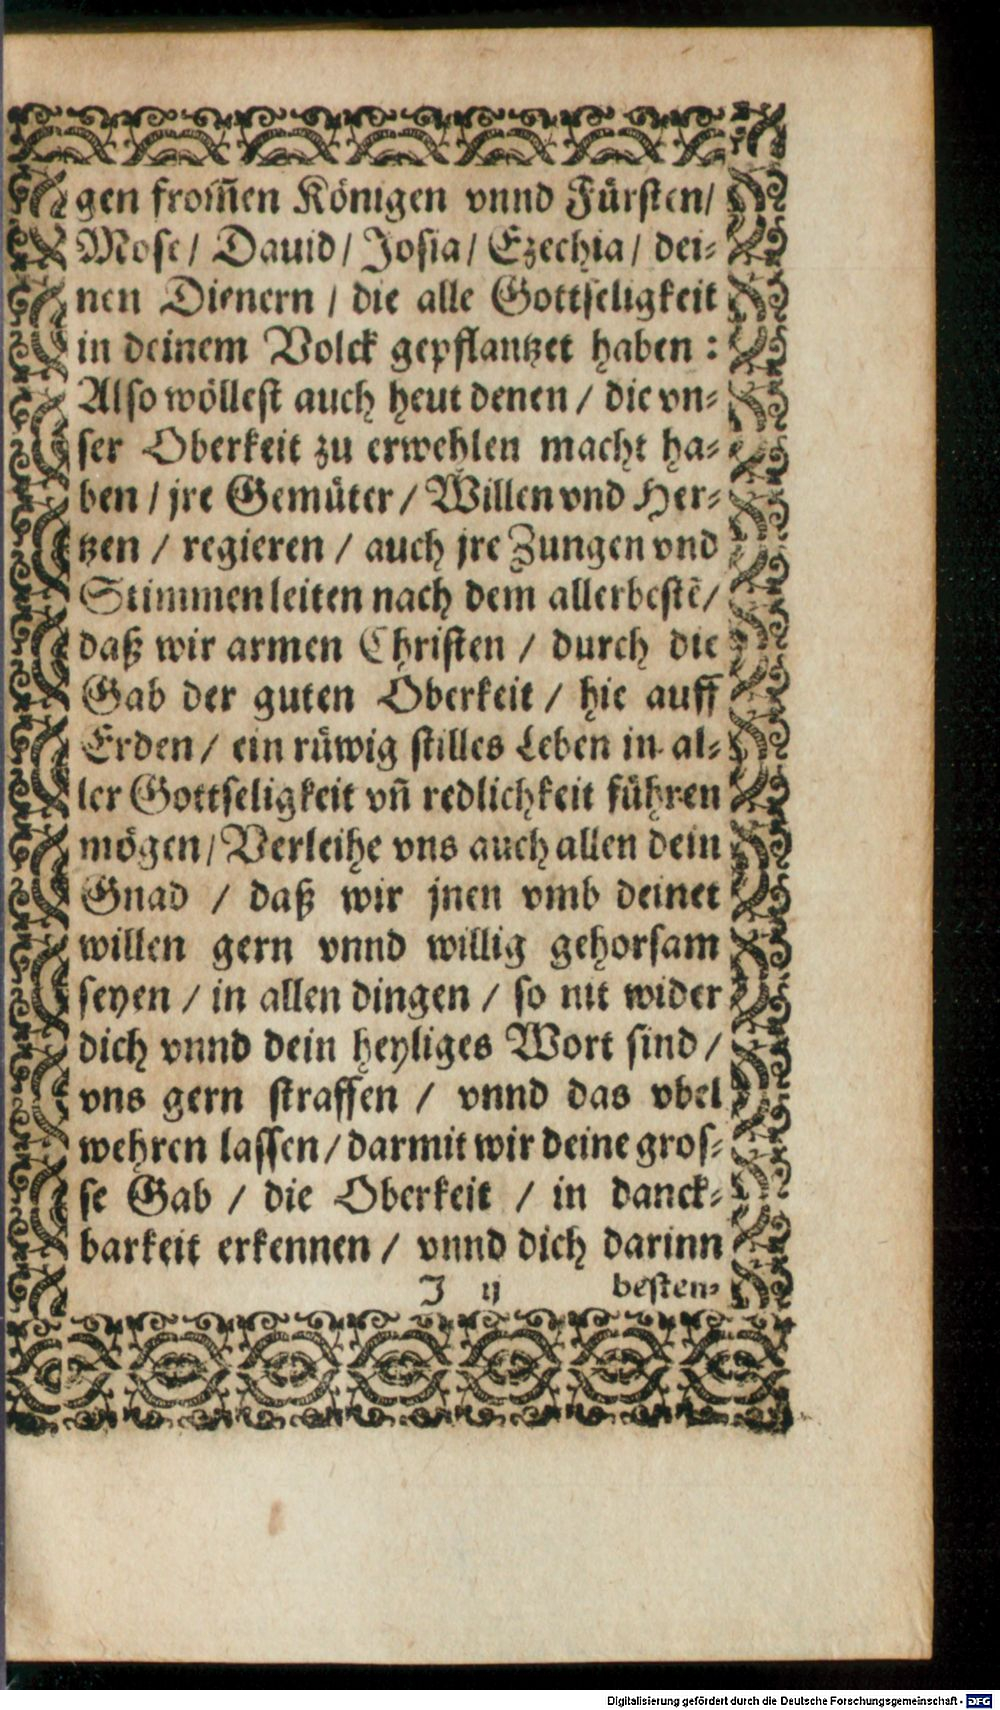 gen from̃en Königen vnnd Fürsten/
Mose/ Dauid/ Josia/ Ezechia/ dei-
nen Dienern / die alle Gottseligkeit
in deinem Volck gepflantzet haben :
Also wöllest auch heut denen / die vn-
ser Oberkeit zu erwehlen macht ha-
ben / jre Gemüter / Willen vnd Her-
tzen / regieren / auch jre Zungen vnd
Stimmen leiten nach dem allerbestẽ/
daß wir armen Christen / durch die
Gab der guten Oberkeit / hie auff
Erden/ ein rüwig stilles Leben in al-
ler Gottseligkeit vñ redlichkeit führen
mögen/ Verleihe vns auch allen dein
Gnad / daß wir jnen vmb deinet
willen gern vnnd willig gehorsam
seyen / in allen dingen / so nit wider
dich vnnd dein heyliges Wort sind /
vns gern straffen / vnnd das vbel
wehren lassen / darmit wir deine gros-
se Gab / die Oberkeit / in danck-
barkeit erkennen / vnnd dich darinn
J ij besten-
Digitalisierung gefördert durch die Deutsche Forschungsgemeinschaft - DFG